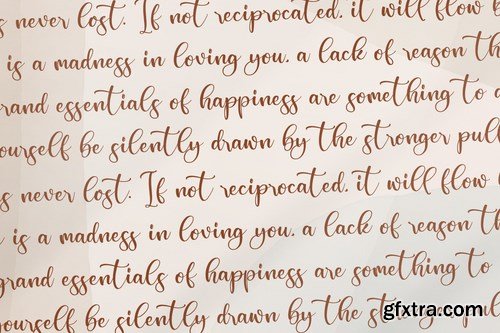 s never lost. If not reciprocated, it will flow
is a madness in loving you. a lack of reason th
grand essentials of happiness are something to
yourself be silently drawn by the stronger pull
s never lost. If not reciprocated, it will flow
is a madness in loving you. a lack of reason th
grand essentials of happiness are something to
yourself be silently drawn by the stronger pul
gfxtra.com